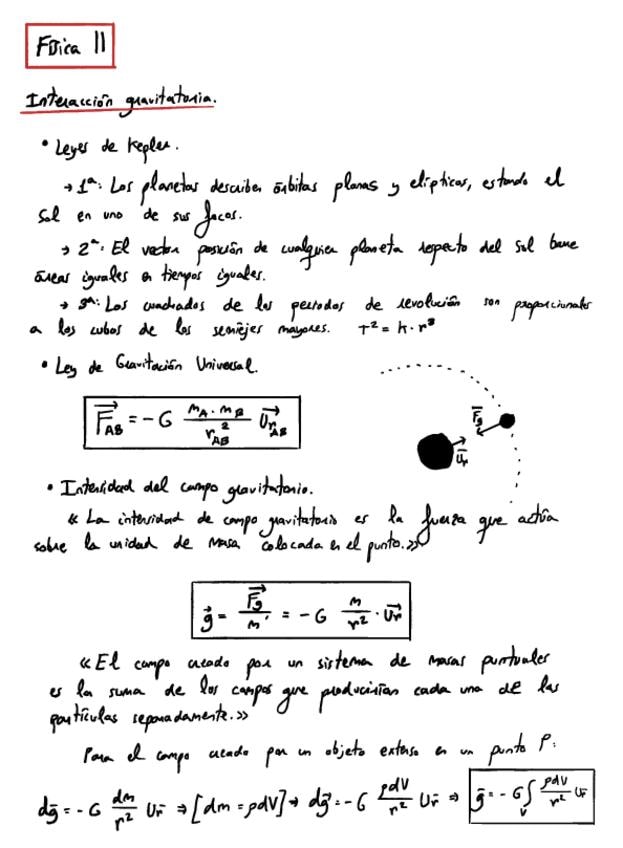 Física II
Interacción gravitatoria.
• Leyes de Kepler.
→ 1ª: Los planetas describen órbitas planas y elípticas, estando el
Sol en uno de sus focos.
→ 2ª: El vector posición de cualquier planeta respecto del Sol barre
áreas iguales en tiempos iguales.
→ 3ª: Los cuadrados de los periodos de revolución son proporcionales
a los cubos de los semiejes mayores. T² = k · r³
• Ley de Gravitación Universal.
F⃗_AB = - G (m_A · m_B / r_AB²) U⃗r_AB
F⃗g
U⃗r
• Intensidad del campo gravitatorio.
« La intensidad de campo gravitatorio es la fuerza que actúa
sobre la unidad de masa colocada en el punto.»
g⃗ = F⃗g / m' = - G (m / r²) · U⃗r
« El campo creado por un sistema de masas puntuales
es la suma de los campos que producirían cada una de las
partículas separadamente.»
Para el campo creado por un objeto extenso en un punto P:
dg⃗ = - G (dm / r²) U⃗r ⇒ [dm = ρdV] → dg⃗ = - G (ρdV / r²) U⃗r ⇒ g⃗ = - G ∫_V (ρdV / r²) U⃗r